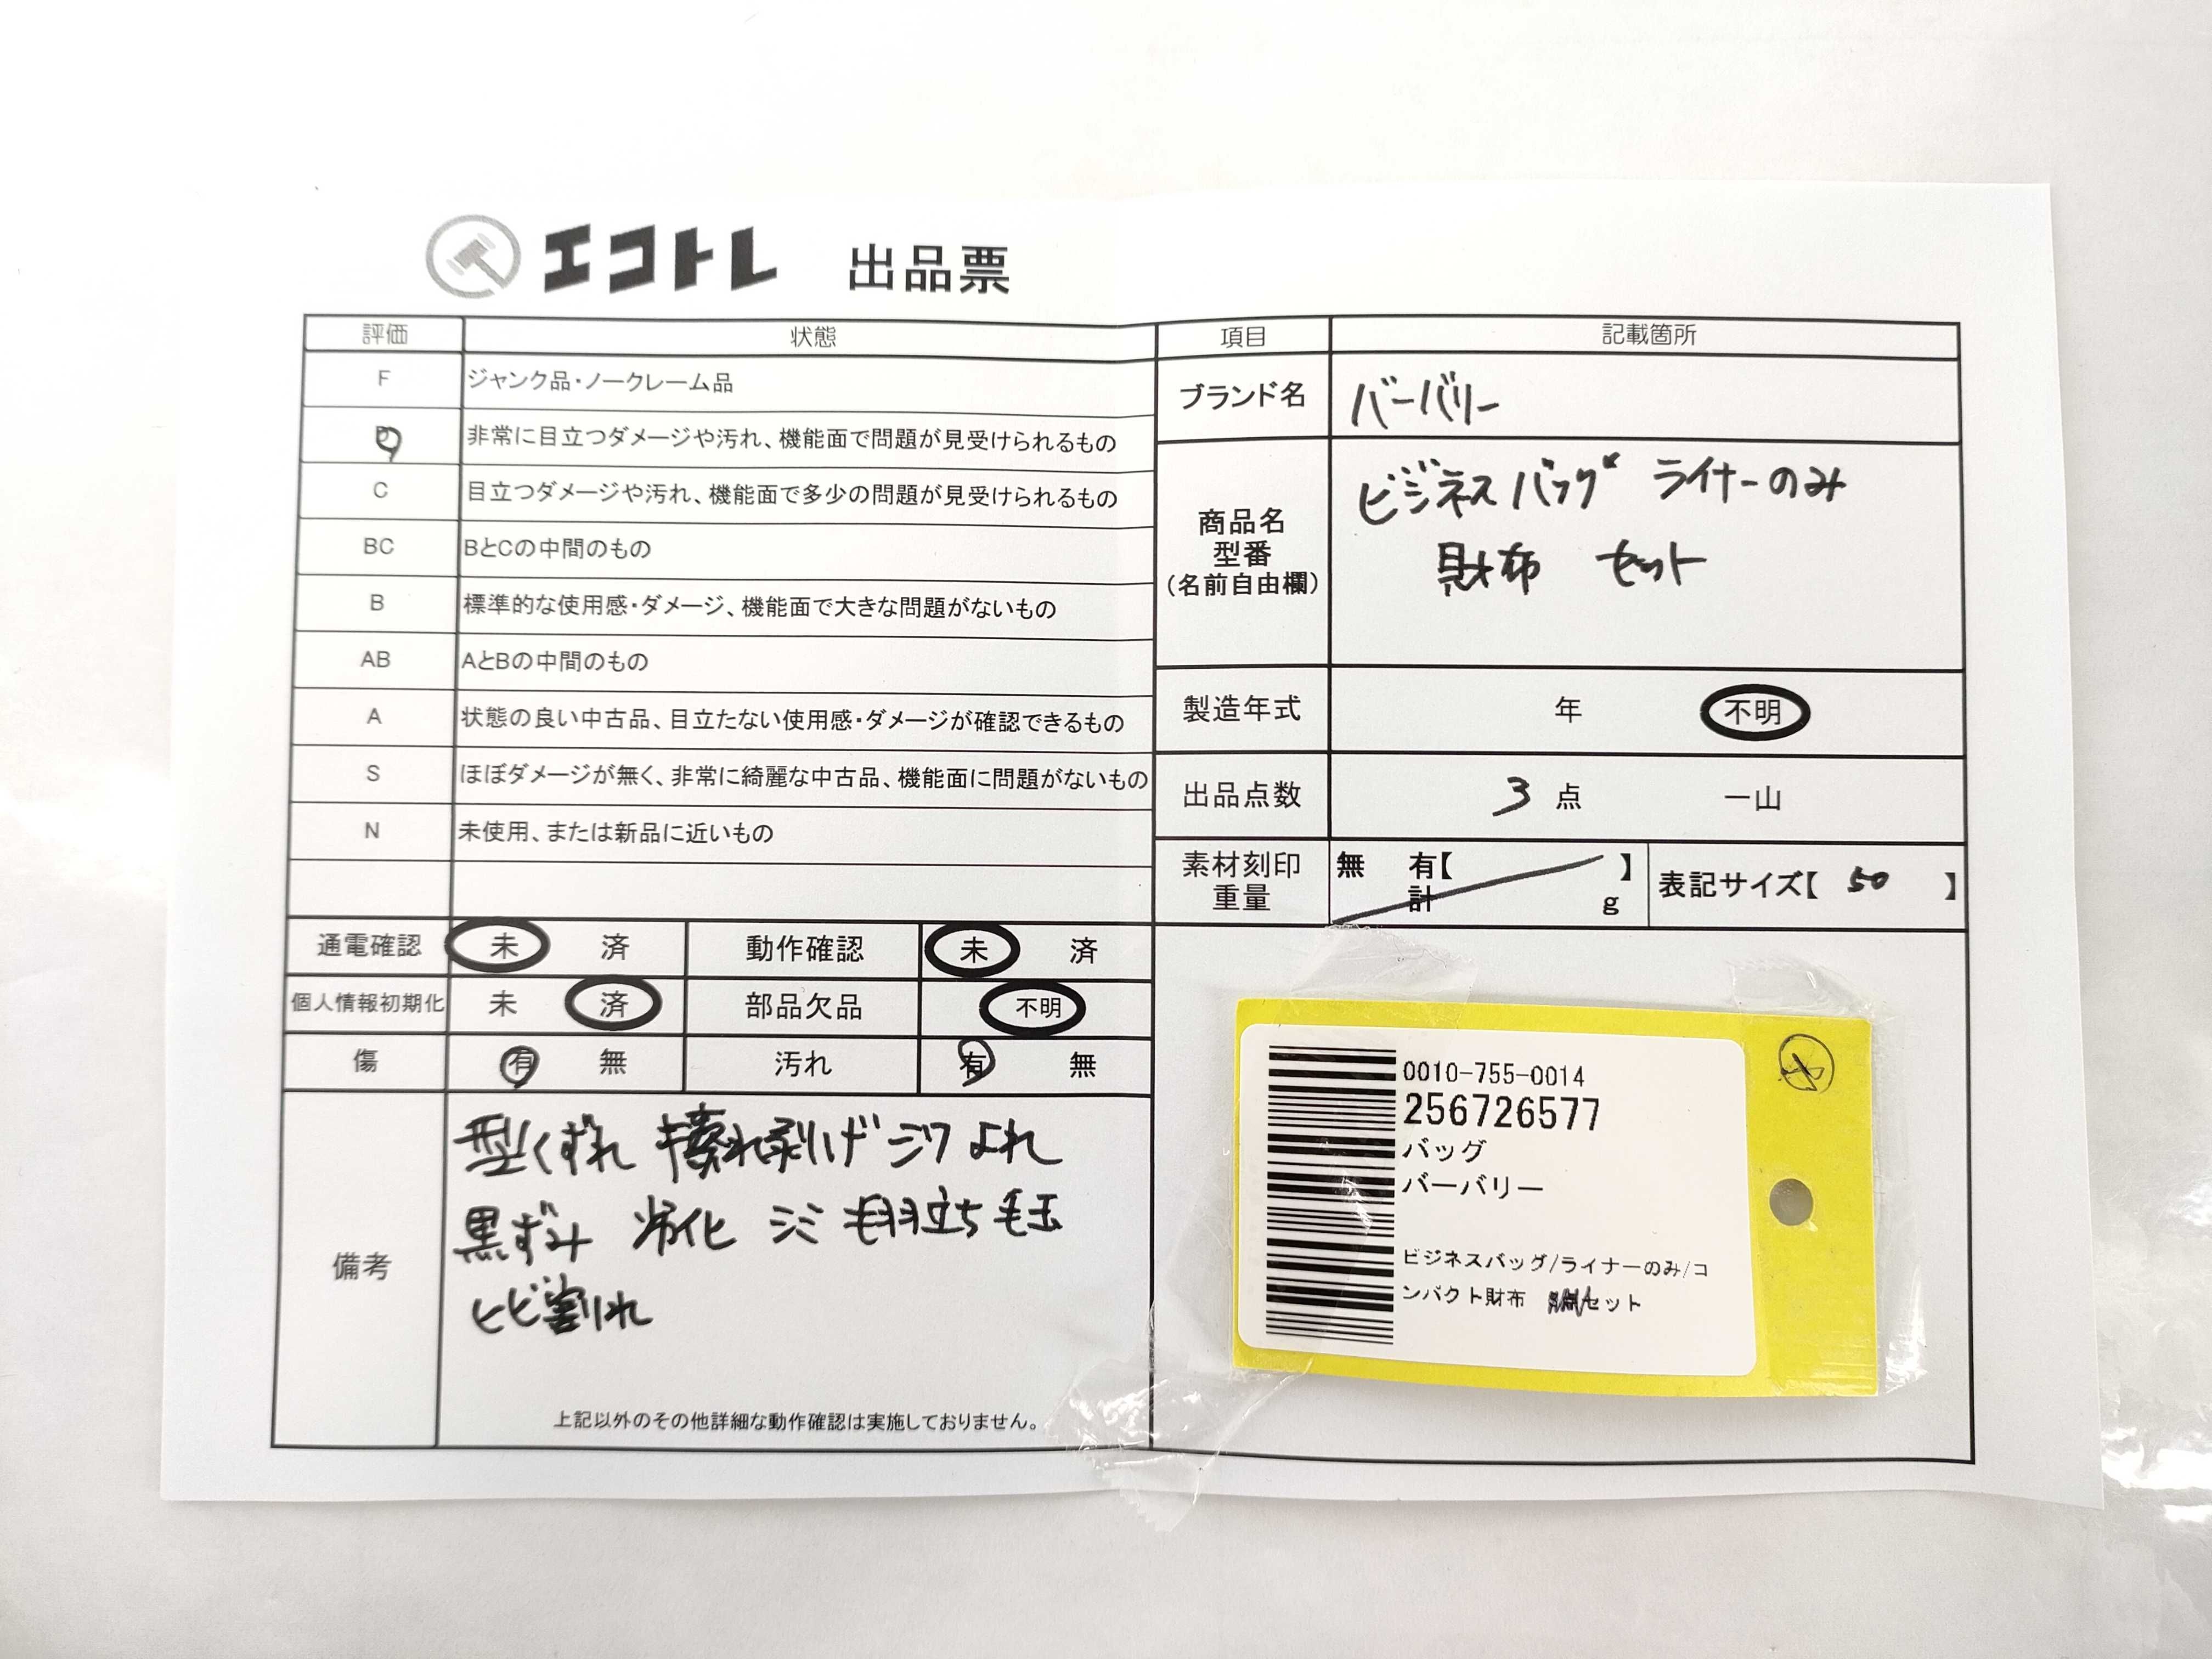 エコトレ 出品票
評価 状態
F ジャンク品・ノークレーム品
D 非常に目立つダメージや汚れ、機能面で問題が見受けられるもの
C 目立つダメージや汚れ、機能面で多少の問題が見受けられるもの
BC BとCの中間のもの
B 標準的な使用感・ダメージ、機能面で大きな問題がないもの
AB AとBの中間のもの
A 状態の良い中古品、目立たない使用感・ダメージが確認できるもの
S ほぼダメージが無く、非常に綺麗な中古品、機能面に問題がないもの
N 未使用、または新品に近いもの
通電確認 未 済 動作確認 未 済
個人情報初期化 未 済 部品欠品 不明
傷 有 無 汚れ 有 無
備考
型くずれ 擦れ剥げ シワ よれ
黒ずみ 劣化 シミ 毛羽立ち 毛玉
ヒビ割れ
上記以外のその他詳細な動作確認は実施しておりません。
項目 記載箇所
ブランド名 バーバリー
商品名
型番
(名前自由欄)
ビジネスバッグ ライナーのみ
財布 セット
製造年式 年 不明
出品点数 3 点 一山
素材刻印 無 有【 】
重量 計 g
表記サイズ【 50 】
0010-755-0014
256726577
バッグ
バーバリー
ビジネスバッグ/ライナーのみ/コ
ンパクト財布 セット